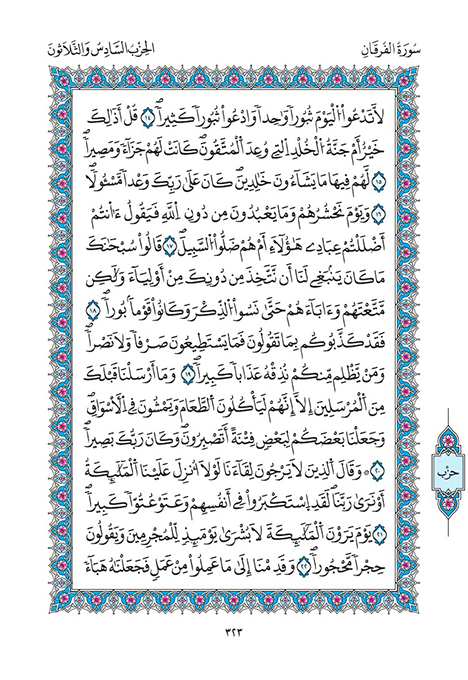 سُورَةُ الْفُرْقَانِ
الحِزْبُ السَّادِسُ وَالثَّلَاثُونَ
لَا تَدْعُوا۟ الْيَوْمَ ثُبُورًا وَٰحِدًا وَادْعُوا۟ ثُبُورًا كَثِيرًا ١٤ قُلْ أَذَٰلِكَ
خَيْرٌ أَمْ جَنَّةُ الْخُلْدِ الَّتِي وُعِدَ الْمُتَّقُونَ كَانَتْ لَهُمْ جَزَآءً وَمَصِيرًا
١٥ لَّهُمْ فِيهَا مَا يَشَآءُونَ خَٰلِدِينَ كَانَ عَلَىٰ رَبِّكَ وَعْدًا مَّسْـُٔولًا
١٦ وَيَوْمَ نَحْشُرُهُمْ وَمَا يَعْبُدُونَ مِن دُونِ اللَّهِ فَيَقُولُ ءَا۬نتُمْ
أَضْلَلْتُمْ عِبَادِي هَٰٓؤُلَآءِ أَمْ هُمْ ضَلُّوا۟ السَّبِيلَ ١٧ قَالُوا۟ سُبْحَٰنَكَ
مَا كَانَ يَنۢبَغِي لَنَا أَن نَّتَّخِذَ مِن دُونِكَ مِنْ أَوْلِيَآءَ وَلَٰكِن
مَّتَّعْتَهُمْ وَءَابَآءَهُمْ حَتَّىٰ نَسُوا۟ الذِّكْرَ وَكَانُوا۟ قَوْمًۢا بُورًا ١٨
فَقَدْ كَذَّبُوكُم بِمَا تَقُولُونَ فَمَا يَسْتَطِيعُونَ صَرْفًا وَلَا نَصْرًا
وَمَن يَظْلِم مِّنكُمْ نُذِقْهُ عَذَابًا كَبِيرًا ١٩ وَمَآ أَرْسَلْنَا قَبْلَكَ
مِنَ الْمُرْسَلِينَ إِلَّآ إِنَّهُمْ لَيَأْكُلُونَ الطَّعَامَ وَيَمْشُونَ فِي الْأَسْوَاقِ
وَجَعَلْنَا بَعْضَكُمْ لِبَعْضٍ فِتْنَةً أَتَصْبِرُونَ وَكَانَ رَبُّكَ بَصِيرًا
٢٠ وَقَالَ الَّذِينَ لَا يَرْجُونَ لِقَآءَنَا لَوْلَآ أُنزِلَ عَلَيْنَا الْمَلَٰٓئِكَةُ
أَوْ نَرَىٰ رَبَّنَا لَقَدِ اسْتَكْبَرُوا۟ فِي أَنفُسِهِمْ وَعَتَوْ عُتُوًّا كَبِيرًا
٢١ يَوْمَ يَرَوْنَ الْمَلَٰٓئِكَةَ لَا بُشْرَىٰ يَوْمَئِذٍ لِّلْمُجْرِمِينَ وَيَقُولُونَ
حِجْرًا مَّحْجُورًا ٢٢ وَقَدِمْنَآ إِلَىٰ مَا عَمِلُوا۟ مِنْ عَمَلٍ فَجَعَلْنَٰهُ هَبَآءً
حزب
٣٢٣